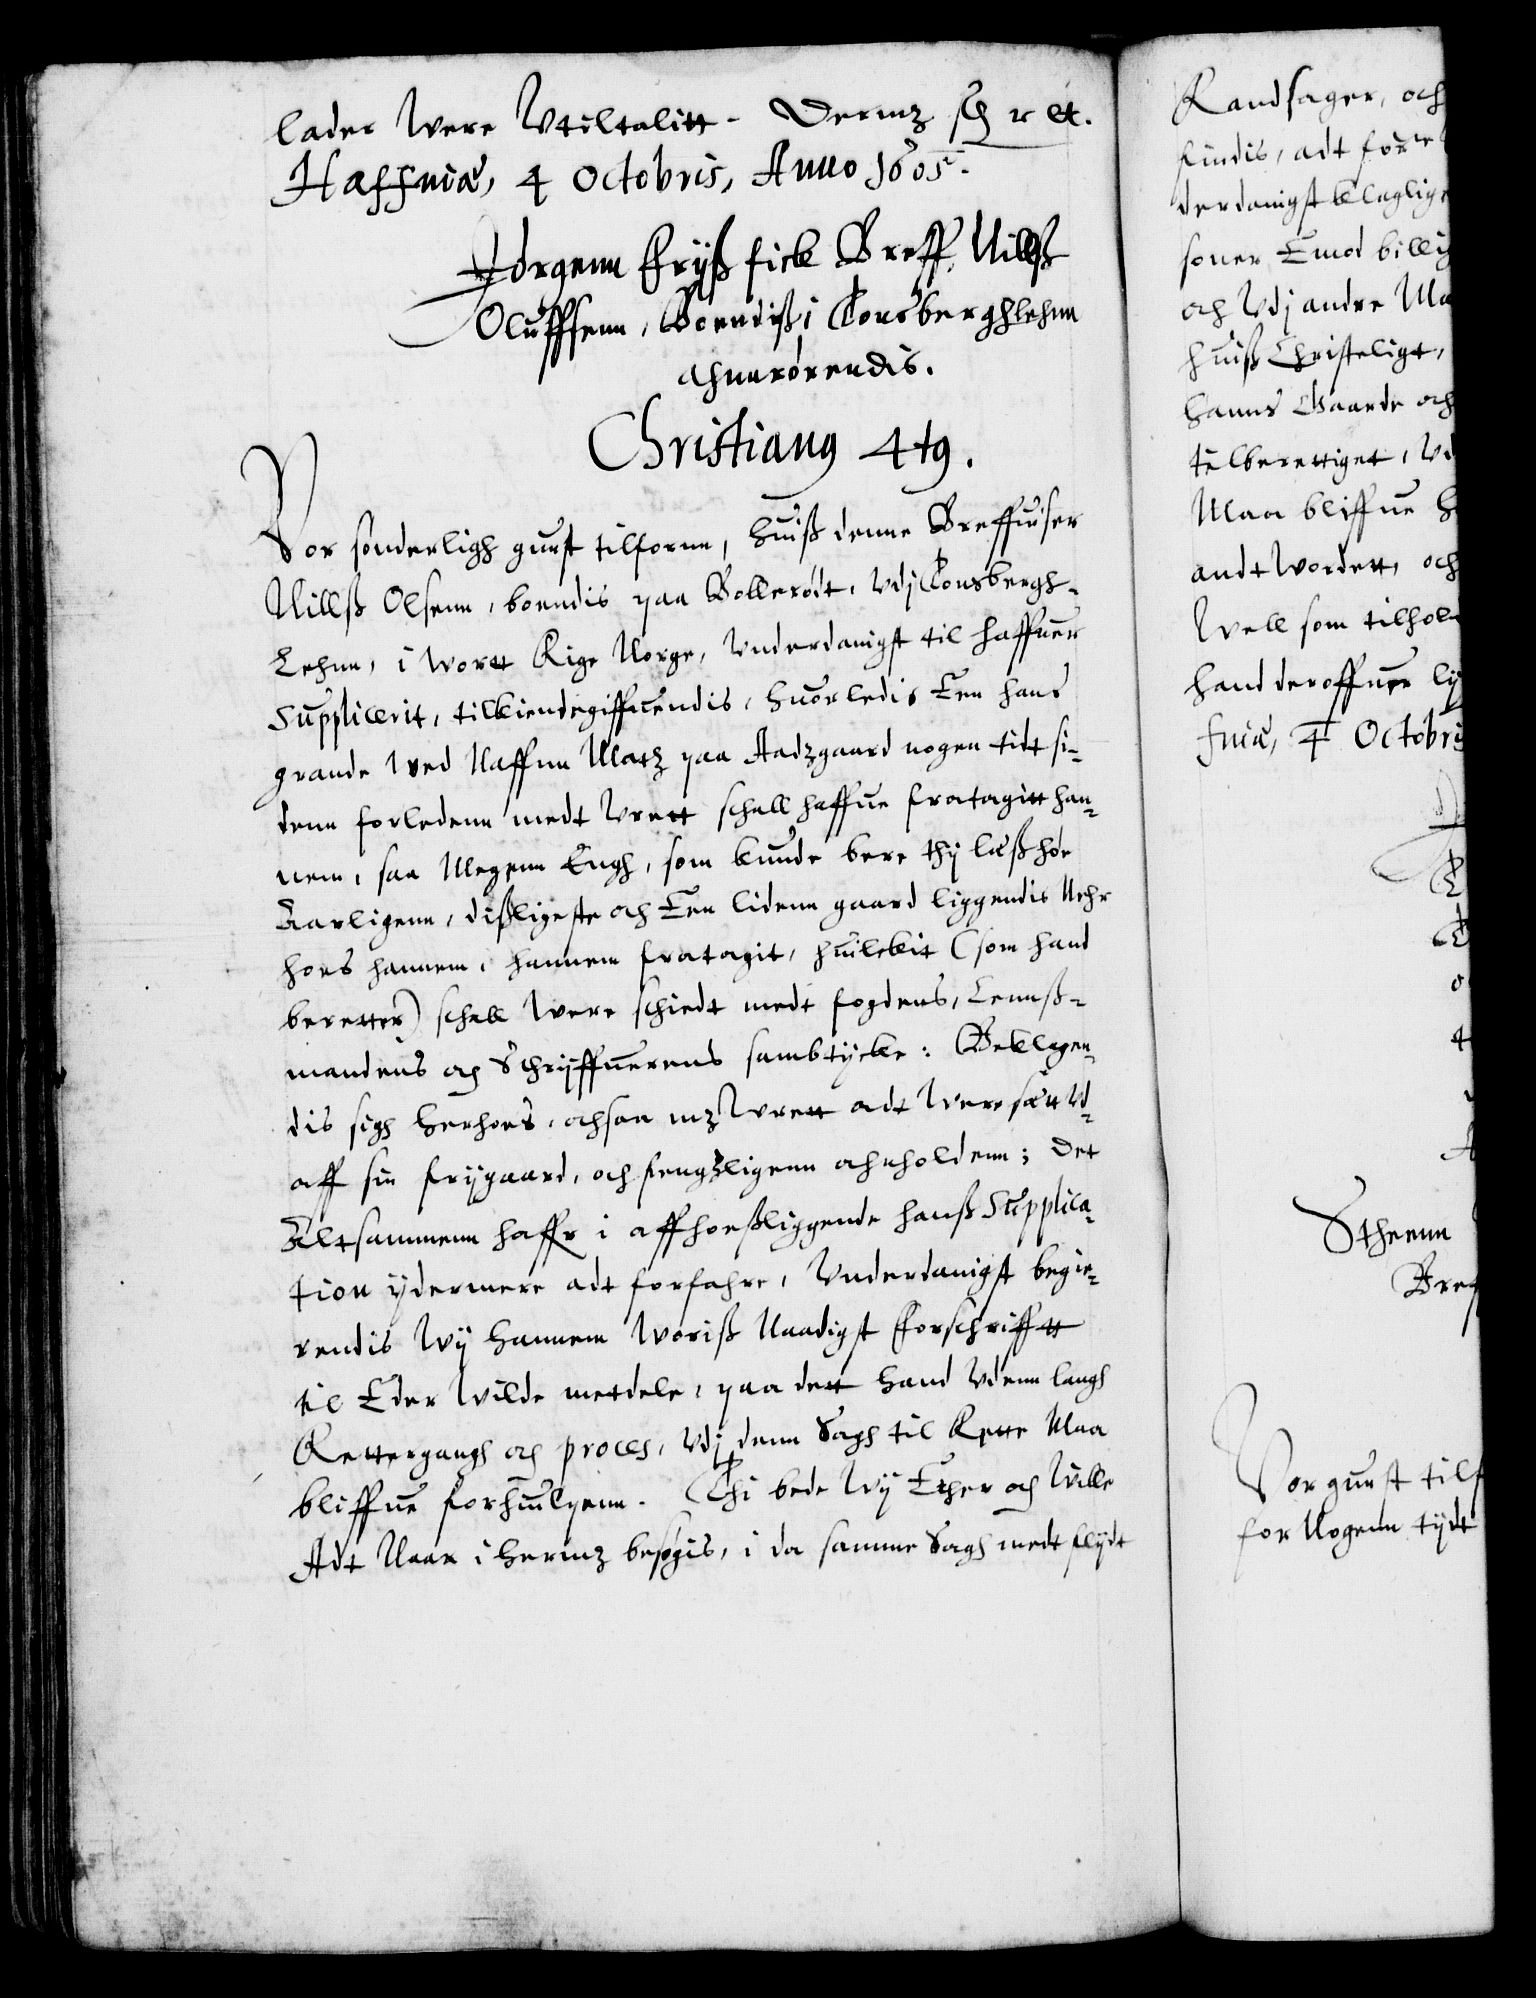 lader were Vtiltalitt. Dermz sch r et.
Haffniæ, 4 Octobris, Anno 1605.
Jørgenn Friiss fick Breff, Nillss
Oluffsenn, Boendiss i Tonsberghlehnn
ahnnrørendis.
Christianus 4tus.
Vor sønderligh gunst tilfornn, Huiss denne Breffuiser
Nillss Olsenn, boendis paa Bollerødt, Vdj Tonsbergh-
Lehnn, i wortt Rige Norge, Vnderdanigst til haffuer
Supplicerit, tilkiendegiffuendis, huorledis Een hans
grande wed Naffnn Matz paa Aadzgaard nogen tidt si-
denn forledenn medt Vrett schall haffue fratagitt han-
nem, saa Megenn Engh, som kunde bere thj læss høe
Aarligenn, dissligeste och Een lidenn gaard liggendis Nehr
hoes hannem, hannem fratagit, huilckit (som hand
beretter) schall were schiedt medt fogdens, Lennss-
mandens och Schriiffuerens sambtycke: Beklagen-
dis sigh herhoes, ochsaa mz Wrett adt were sætt vd-
aff sin friigaard, och fengzligenn ahnholdenn; Det
Altsammenn haffr i aff hoessliggende hanss Supplica-
tion ÿdermere adt forfahre, Vnderdanigst begie-
rendis Wij hannem Woriss Naadigst Forschrifftt
til Eder wilde mettdele, paa dett hand Vdenn langh
Rettergangh och proces, Vdj denn Sagh til Rette Maa
bliffue forhiulpenn. Thi bede Wij Ether och Wille
Adt Naar i hermz besøgis, i da samme Sagh medt flijdt
Randsager, och
findis, adt
derdanigst klaglige
soner Emod billig
och Vdj andre Ma
huiss Christeligt,
hanns Gaarde och
tilberettiget, Vd
Maa bliffue
andtwordett, och
Well som tilhol
hand deroffuer
fniæ, 4 Octobris
Stheenn
Bref
Vor gunst tilf
for Nogenn tijdt